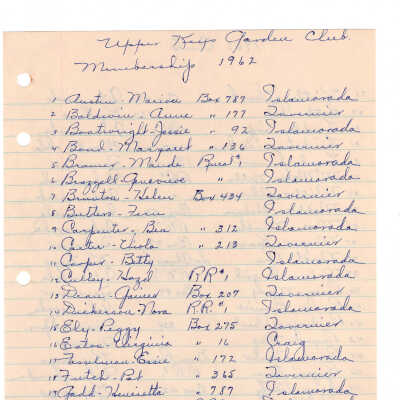 Upper Keys Garden Club
Membership 1962
1 Austin - Marion Box 789 Islamorada
2 Baldwin - Anne " 177 Tavernier
3 Boatwright - Jessie " 92 Islamorada
4 Bond - Margaret " 136 Tavernier
5 Bramer - Maude Rural #1 Islamorada
6 Brazzell - Genevieve " Islamorada
7 Brunton - Helen Box 434 Tavernier
8 Butters - Fern Islamorada
9 Carpenter - Bea " 312 Islamorada
10 Carter - Viola " 213 Tavernier
11 Cooper - Betty Islamorada
12 Culley - Hazel RR #1 Islamorada
13 Dean - Box 207 Tavernier
14 Dickerson - Nora R.R. #1 Islamorada
15 Ely - Peggy Box 275 Tavernier
16 Eaton - Virginia " 16 Craig
17 - Essie " 172 Islamorada
18 Futch - Pat " 365 Tavernier
19 Gadd - Henrietta " 787 Islamorada